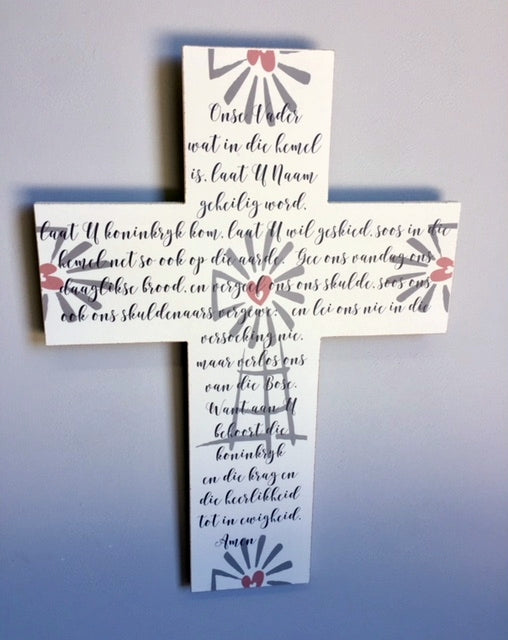 Onse Vader
wat in die hemel
is, laat U Naam
geheilig word,
laat U koninkryk kom, laat U wil geskied, soos in die
hemel net so ook op die aarde. Gee ons vandag ons
daaglikse brood, en vergeef ons ons skulde, soos ons
ook ons skuldenaars vergewe. en lei ons nie in die
versoeking nie,
maar verlos ons
van die Bose.
Want aan U
behoort die
koninkryk
en die krag en
die heerlikheid
tot in ewigheid.
Amen